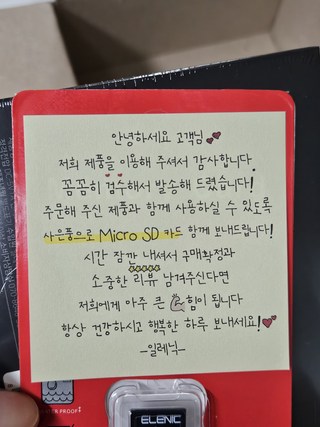 안녕하세요 고객님
저희 제품을 이용해 주셔서 감사합니다.
꼼꼼히 검수해서 발송해 드렸습니다!
주문해 주신 제품과 함께 사용하실 수 있도록
사은품으로 Micro SD 카드 함께 보내드립니다!
시간 잠깐 내셔서 구매확정과
소중한 리뷰 남겨주신다면
저희에게 아주 큰 힘이 됩니다
항상 건강하시고 행복한 하루 보내세요!
-일레닉-
ELENIC